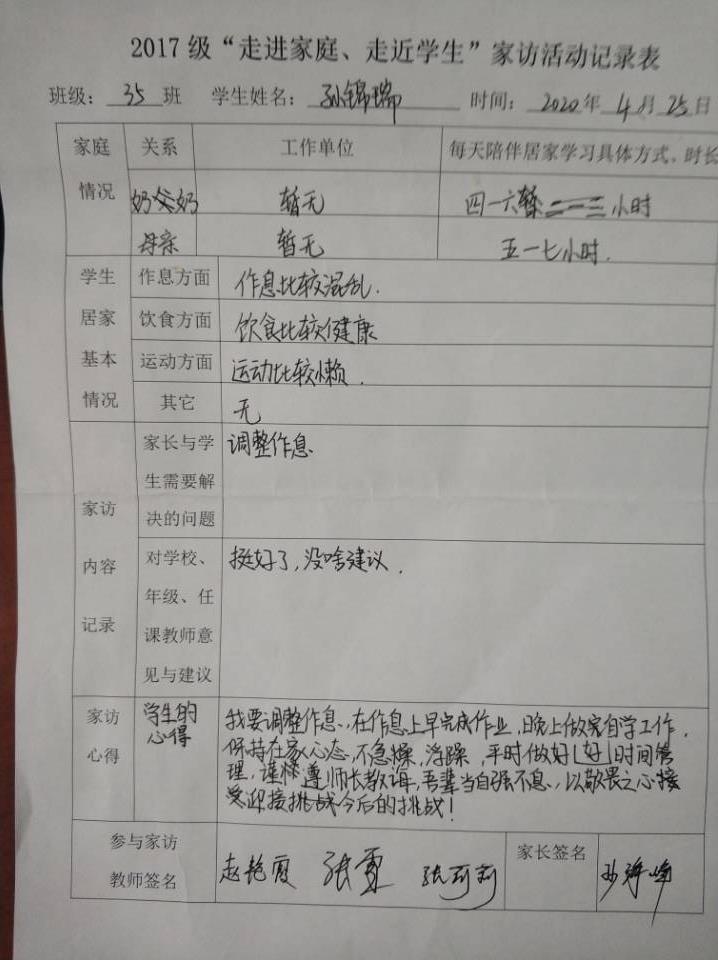 2017级“走进家庭、走近学生”家访活动记录表
班级: 35 班 学生姓名: 孙锦瑞 时间: 2020年 4月 25日
家庭情况 关系 工作单位 每天陪伴居家学习具体方式、时长
奶奶 暂无 四一六 小时
母亲 暂无 五一七小时.
学生居家基本情况 作息方面 作息比较混乱.
饮食方面 饮食比较健康
运动方面 运动比较懒.
其它 无
家访内容记录 家长与学 调整作息.
生需要解
决的问题
对学校、 挺好了,没啥建议.
年级、任
课教师意
见与建议
家访心得 学生的心得
我要调整作息.,在作息上早完成作业,晚上做完自学工作,
保持在家心态,不急燥,浮躁,平时做好[好]时间管
理,谨 遵师长教诲,吾辈当自强不息.,以敬畏之心接
受迎接挑战今后的挑战!
参与家访
教师签名 赵艳霞 张雪 张莉莉 家长签名